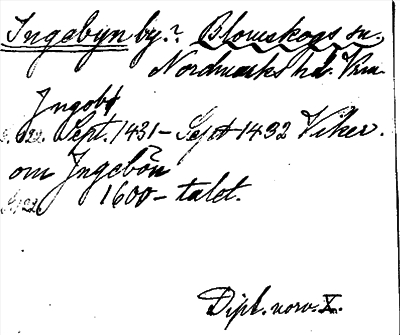 Ingebyn by.? Blomskogs sn.
Nordmarks hd. Vrm.
Ingeb
s. 122. Sept. 1431 – Sept 1432 Viker.
om Ingebön
S. 122. 1600 – talet.
Dipl. norv. X.